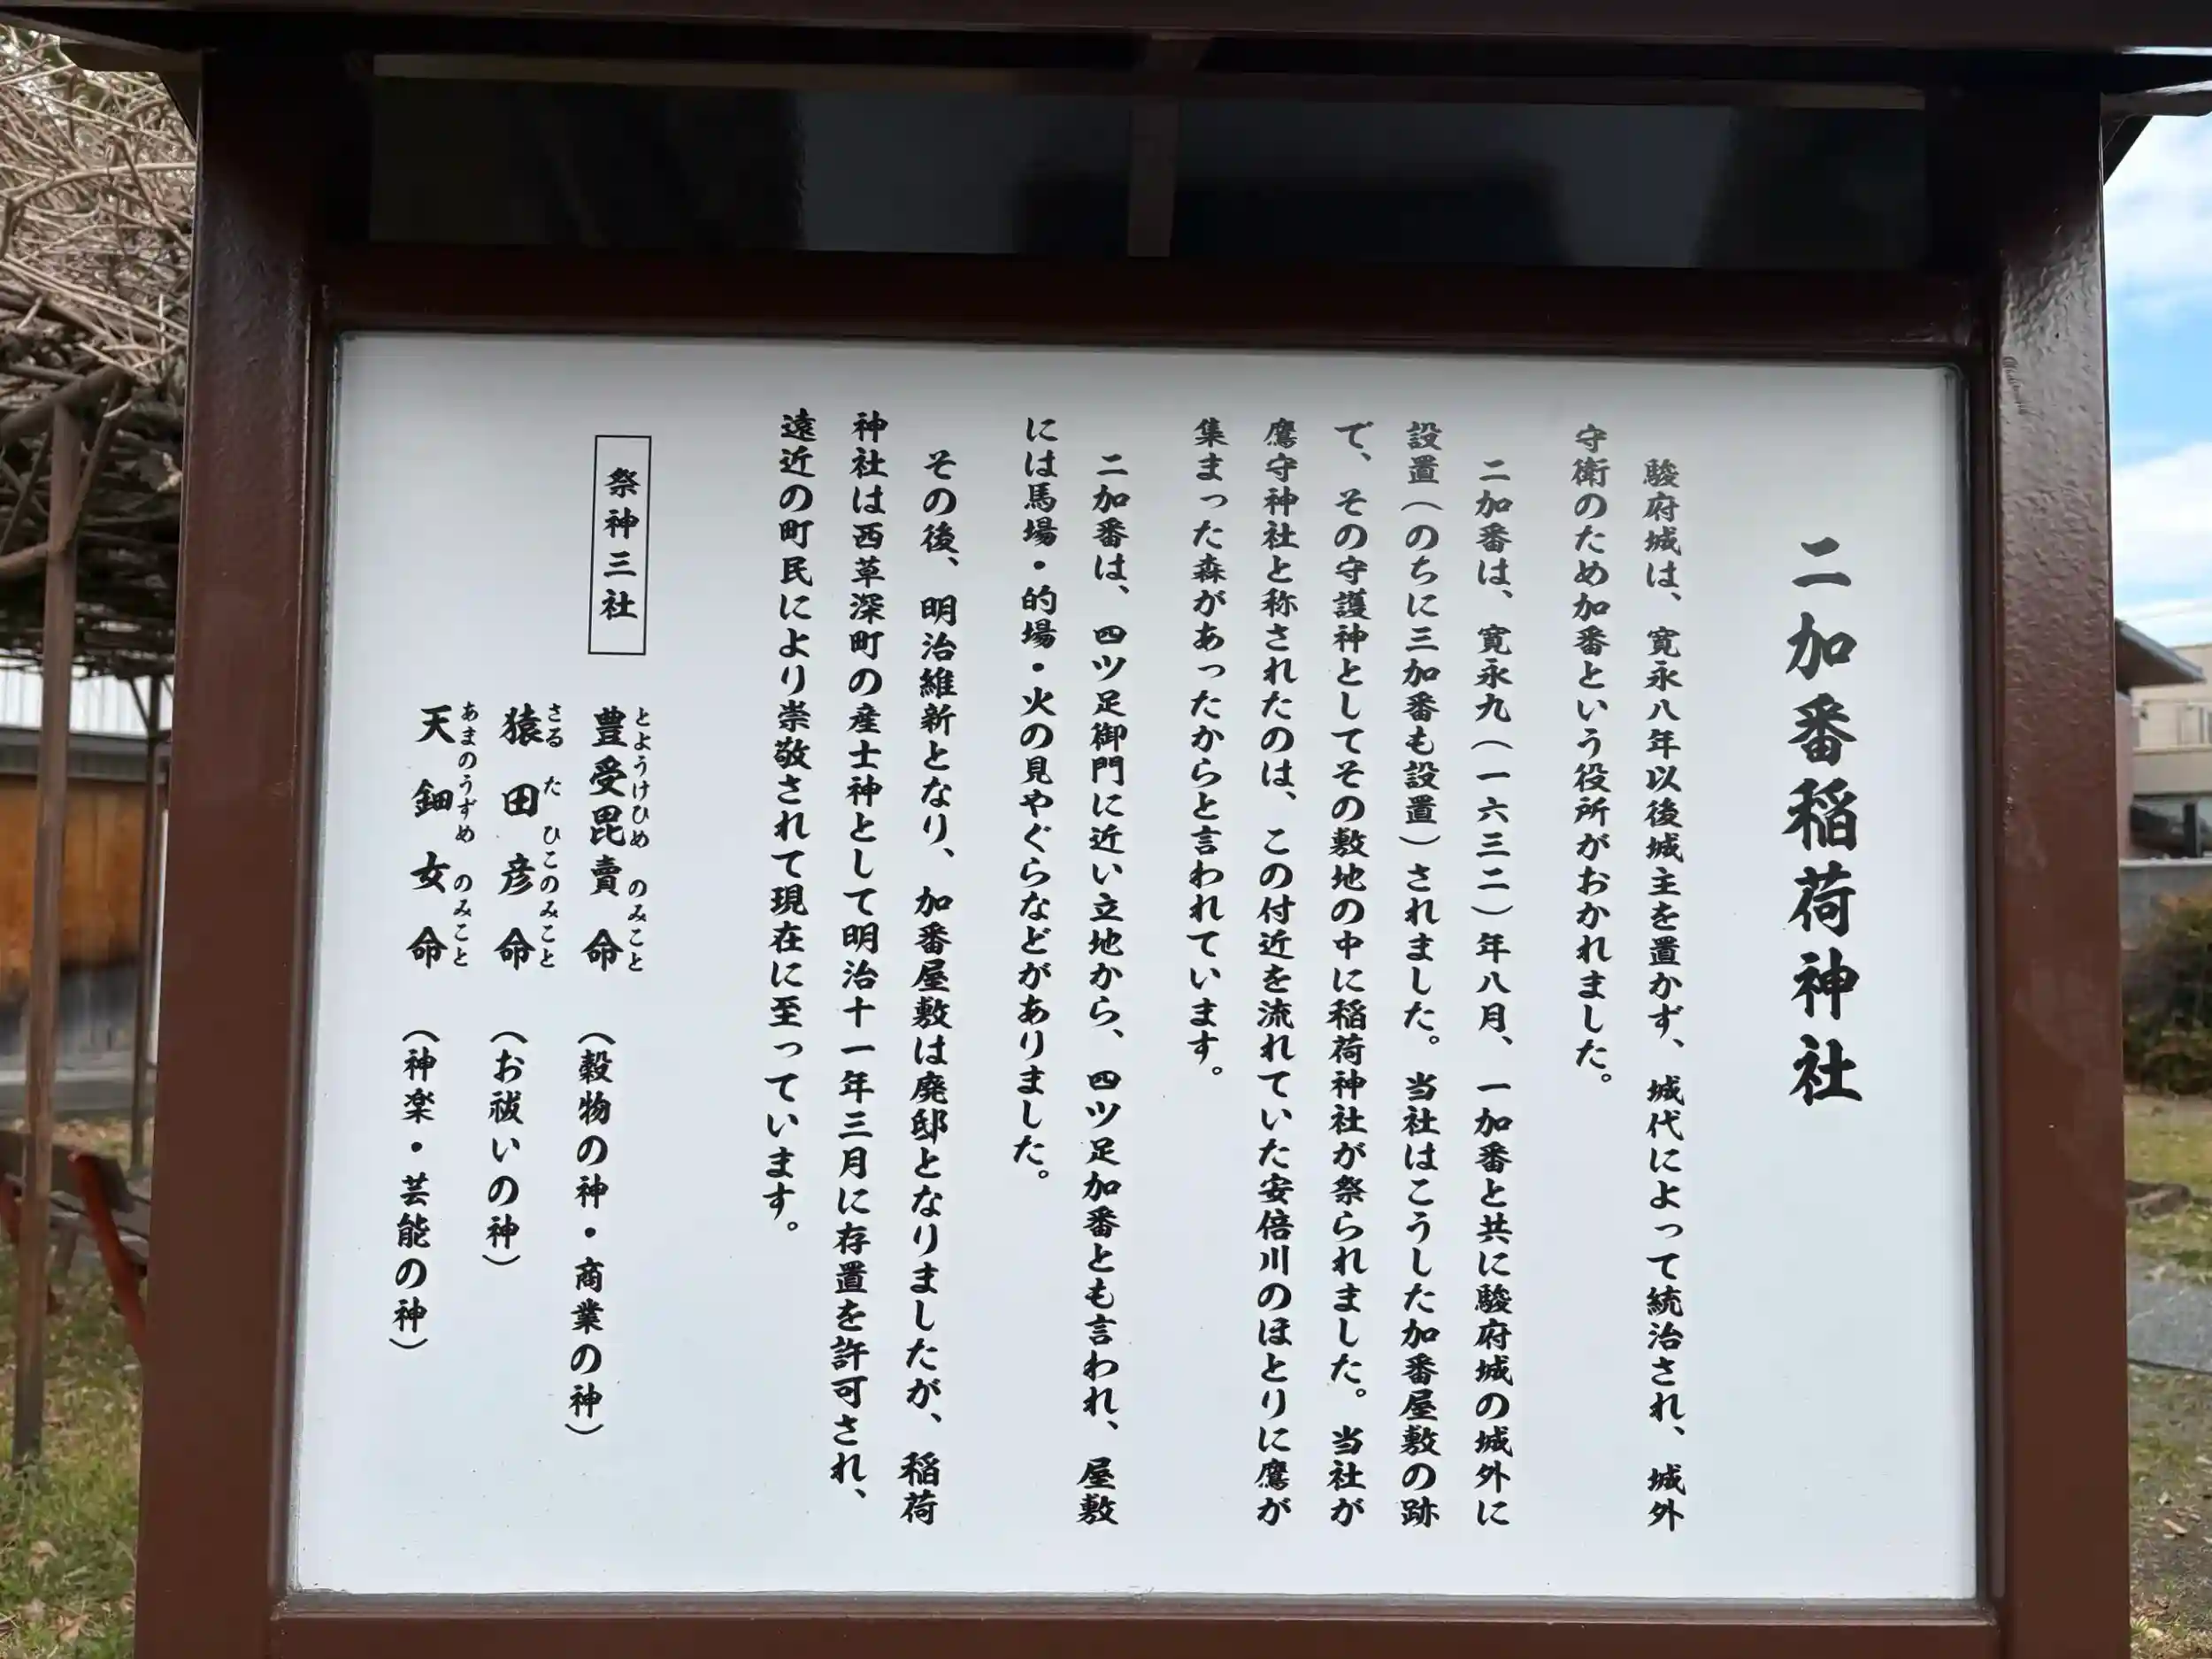 二加番稲荷神社
駿府城は、寛永八年以後城主を置かず、城代によって統治され、城外
守衛のため加番という役所がおかれました。
二加番は、寛永九(一六三二)年八月、一加番と共に駿府城の城外に
設置(のちに三加番も設置)されました。当社はこうした加番屋敷の跡
で、その守護神としてその敷地の中に稲荷神社が祭られました。当社が
鷹守神社と称されたのは、この付近を流れていた安倍川のほとりに鷹が
集まった森があったからと言われています。
二加番は、四ツ足御門に近い立地から、四ツ足加番とも言われ、屋敷
には馬場・的場・火の見やぐらなどがありました。
その後、明治維新となり、加番屋敷は廃邸となりましたが、稲荷
神社は西草深町の産士神として明治十一年三月に存置を許可され、
遠近の町民により崇敬されて現在に至っています。
祭神三社
豊受毘賣命 とようけひめのみこと (穀物の神・商業の神)
猿田彦命 さるたひこのみこと (お祓いの神)
天鈿女命 あまのうずめのみこと (神楽・芸能の神)